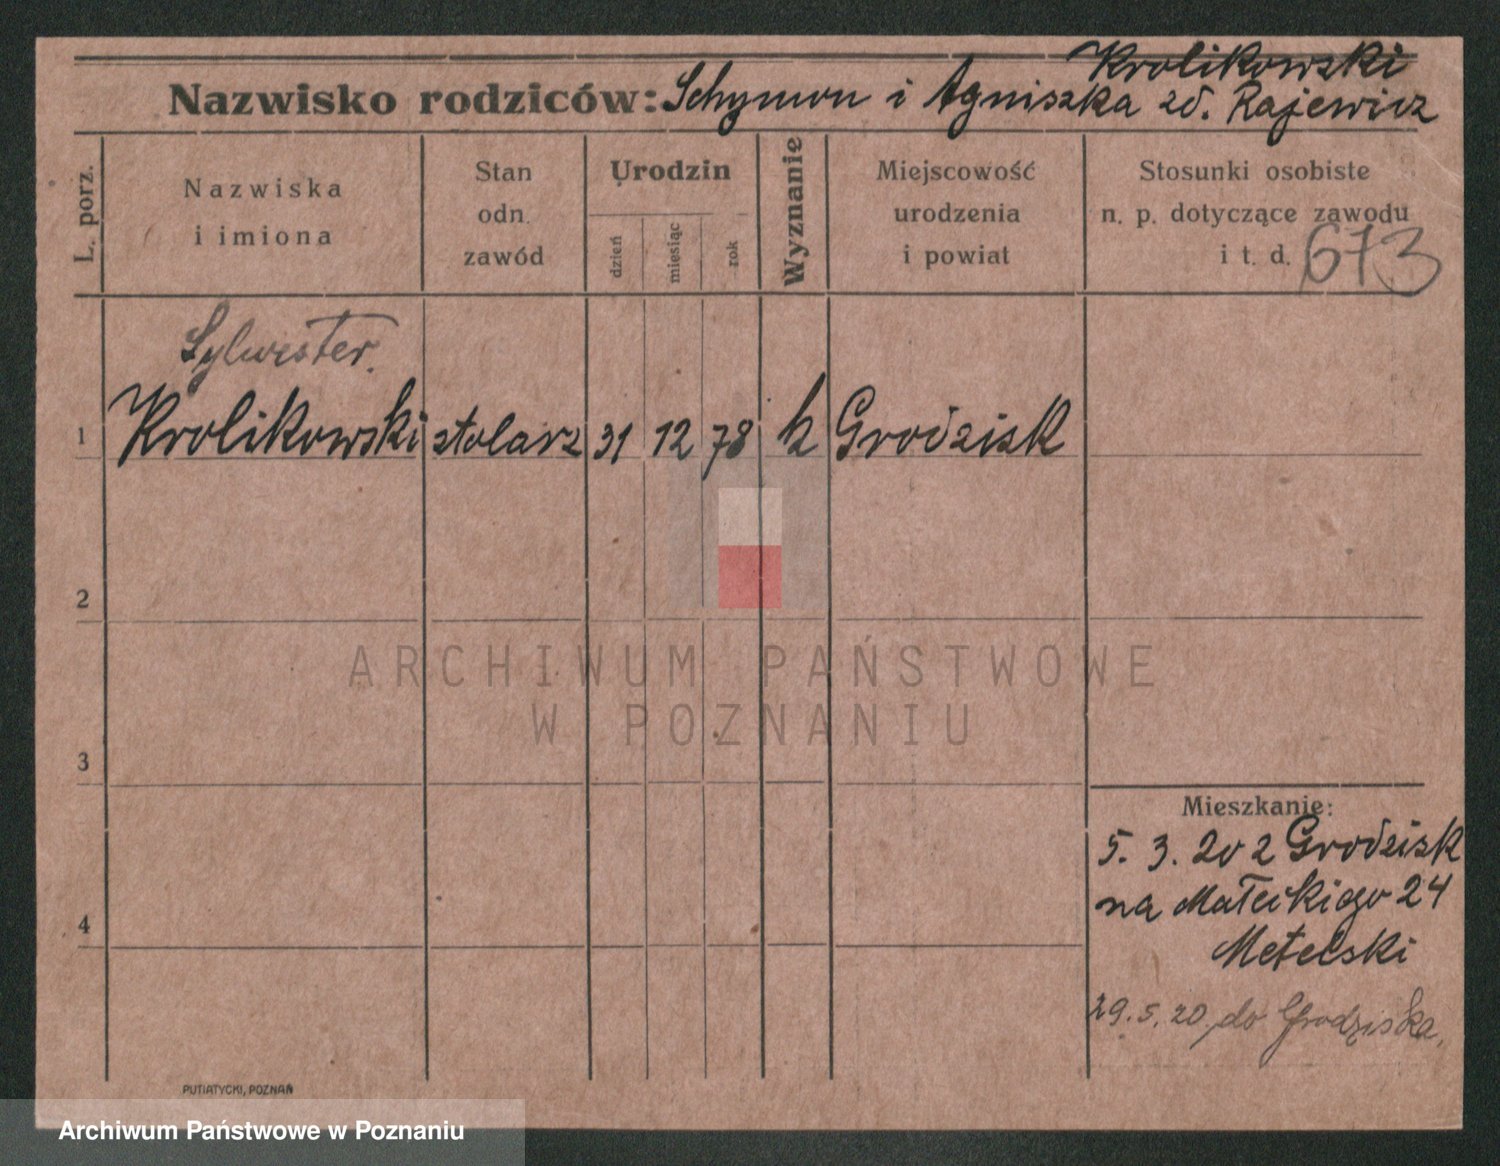 Krolikowski
Nazwisko rodziców: Schymon i Agniszka zd. Rajewicz
L. porz.
Nazwiska
i imiona
Stan
odn.
zawód
Urodzin
dzień
miesiąc
rok
Wyznanie
Miejscowość
urodzenia
i powiat
Stosunki osobiste
n. p. dotyczące zawodu
i t. d. 673
Sylwester.
1 Krolikowski stolarz 31 12 78 k Grodzisk
2
ARCHIWUM PAŃSTWOWE
W POZNANIU
3
Mieszkanie:
5. 3. 20 z Grodzisk
na Małeckiego 24
Metelski
4
29.5.20. do Grodziska.
PUTIATYCKI, POZNAŃ
Archiwum Państwowe w Poznaniu